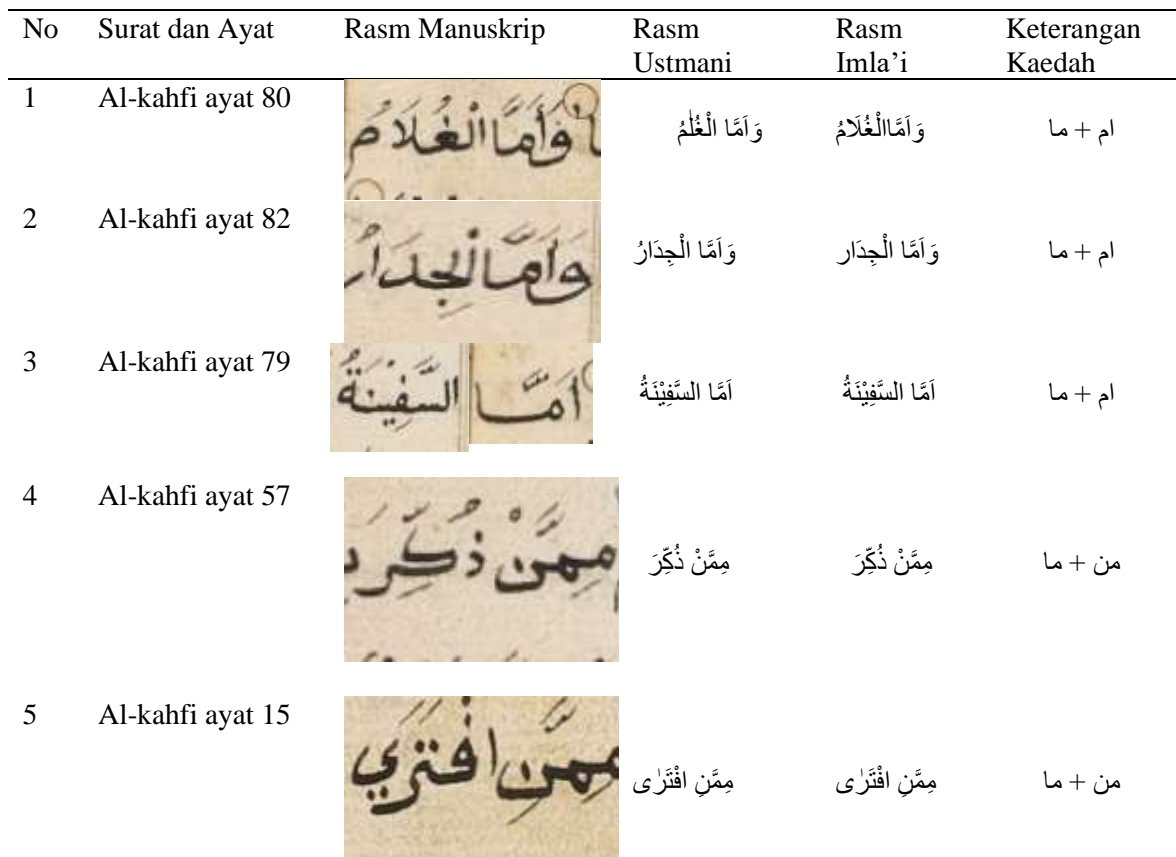 No Surat dan Ayat Rasm Manuskrip Rasm Rasm Keterangan
Ustmani Imla’i Kaedah
1 Al-kahfi ayat 80 وَأَمَّا الْغُلَامُ وَاَمَّا الْغُلٰمُ وَاَمَّاالْغُلَامُ ام + ما
2 Al-kahfi ayat 82 وَاَمَّا الْجِدَارُ وَاَمَّا الْجِدَارُ وَاَمَّا الْجِدَار ام + ما
3 Al-kahfi ayat 79 اَمَّا السَّفِينَةُ اَمَّا السَّفِيْنَةُ اَمَّا السَّفِيْنَةُ ام + ما
4 Al-kahfi ayat 57 مِمَّنْ ذُكِّرَ مِمَّنْ ذُكِّرَ مِمَّنْ ذُكِّرَ من + ما
5 Al-kahfi ayat 15 مِمَّنِ افْتَرَي مِمَّنِ افْتَرٰى مِمَّنِ افْتَرٰى من + ما